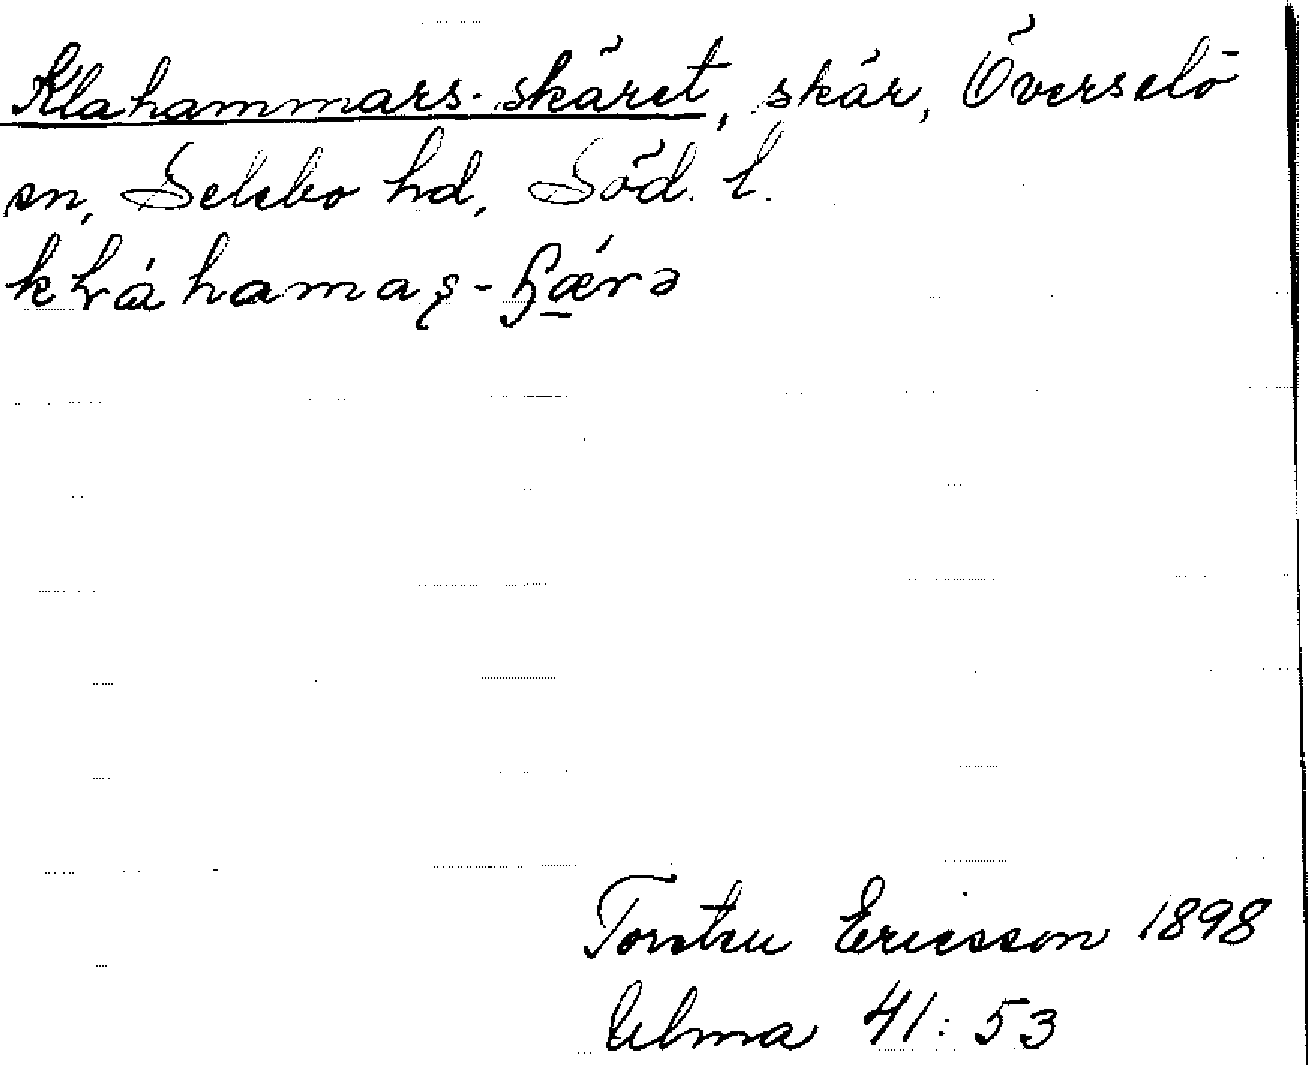 Klahammars-skäret, skär, Överselö
sn, Selebo hd, Söd. l.
Torsten Ericsson 1898
Ulma 41:53